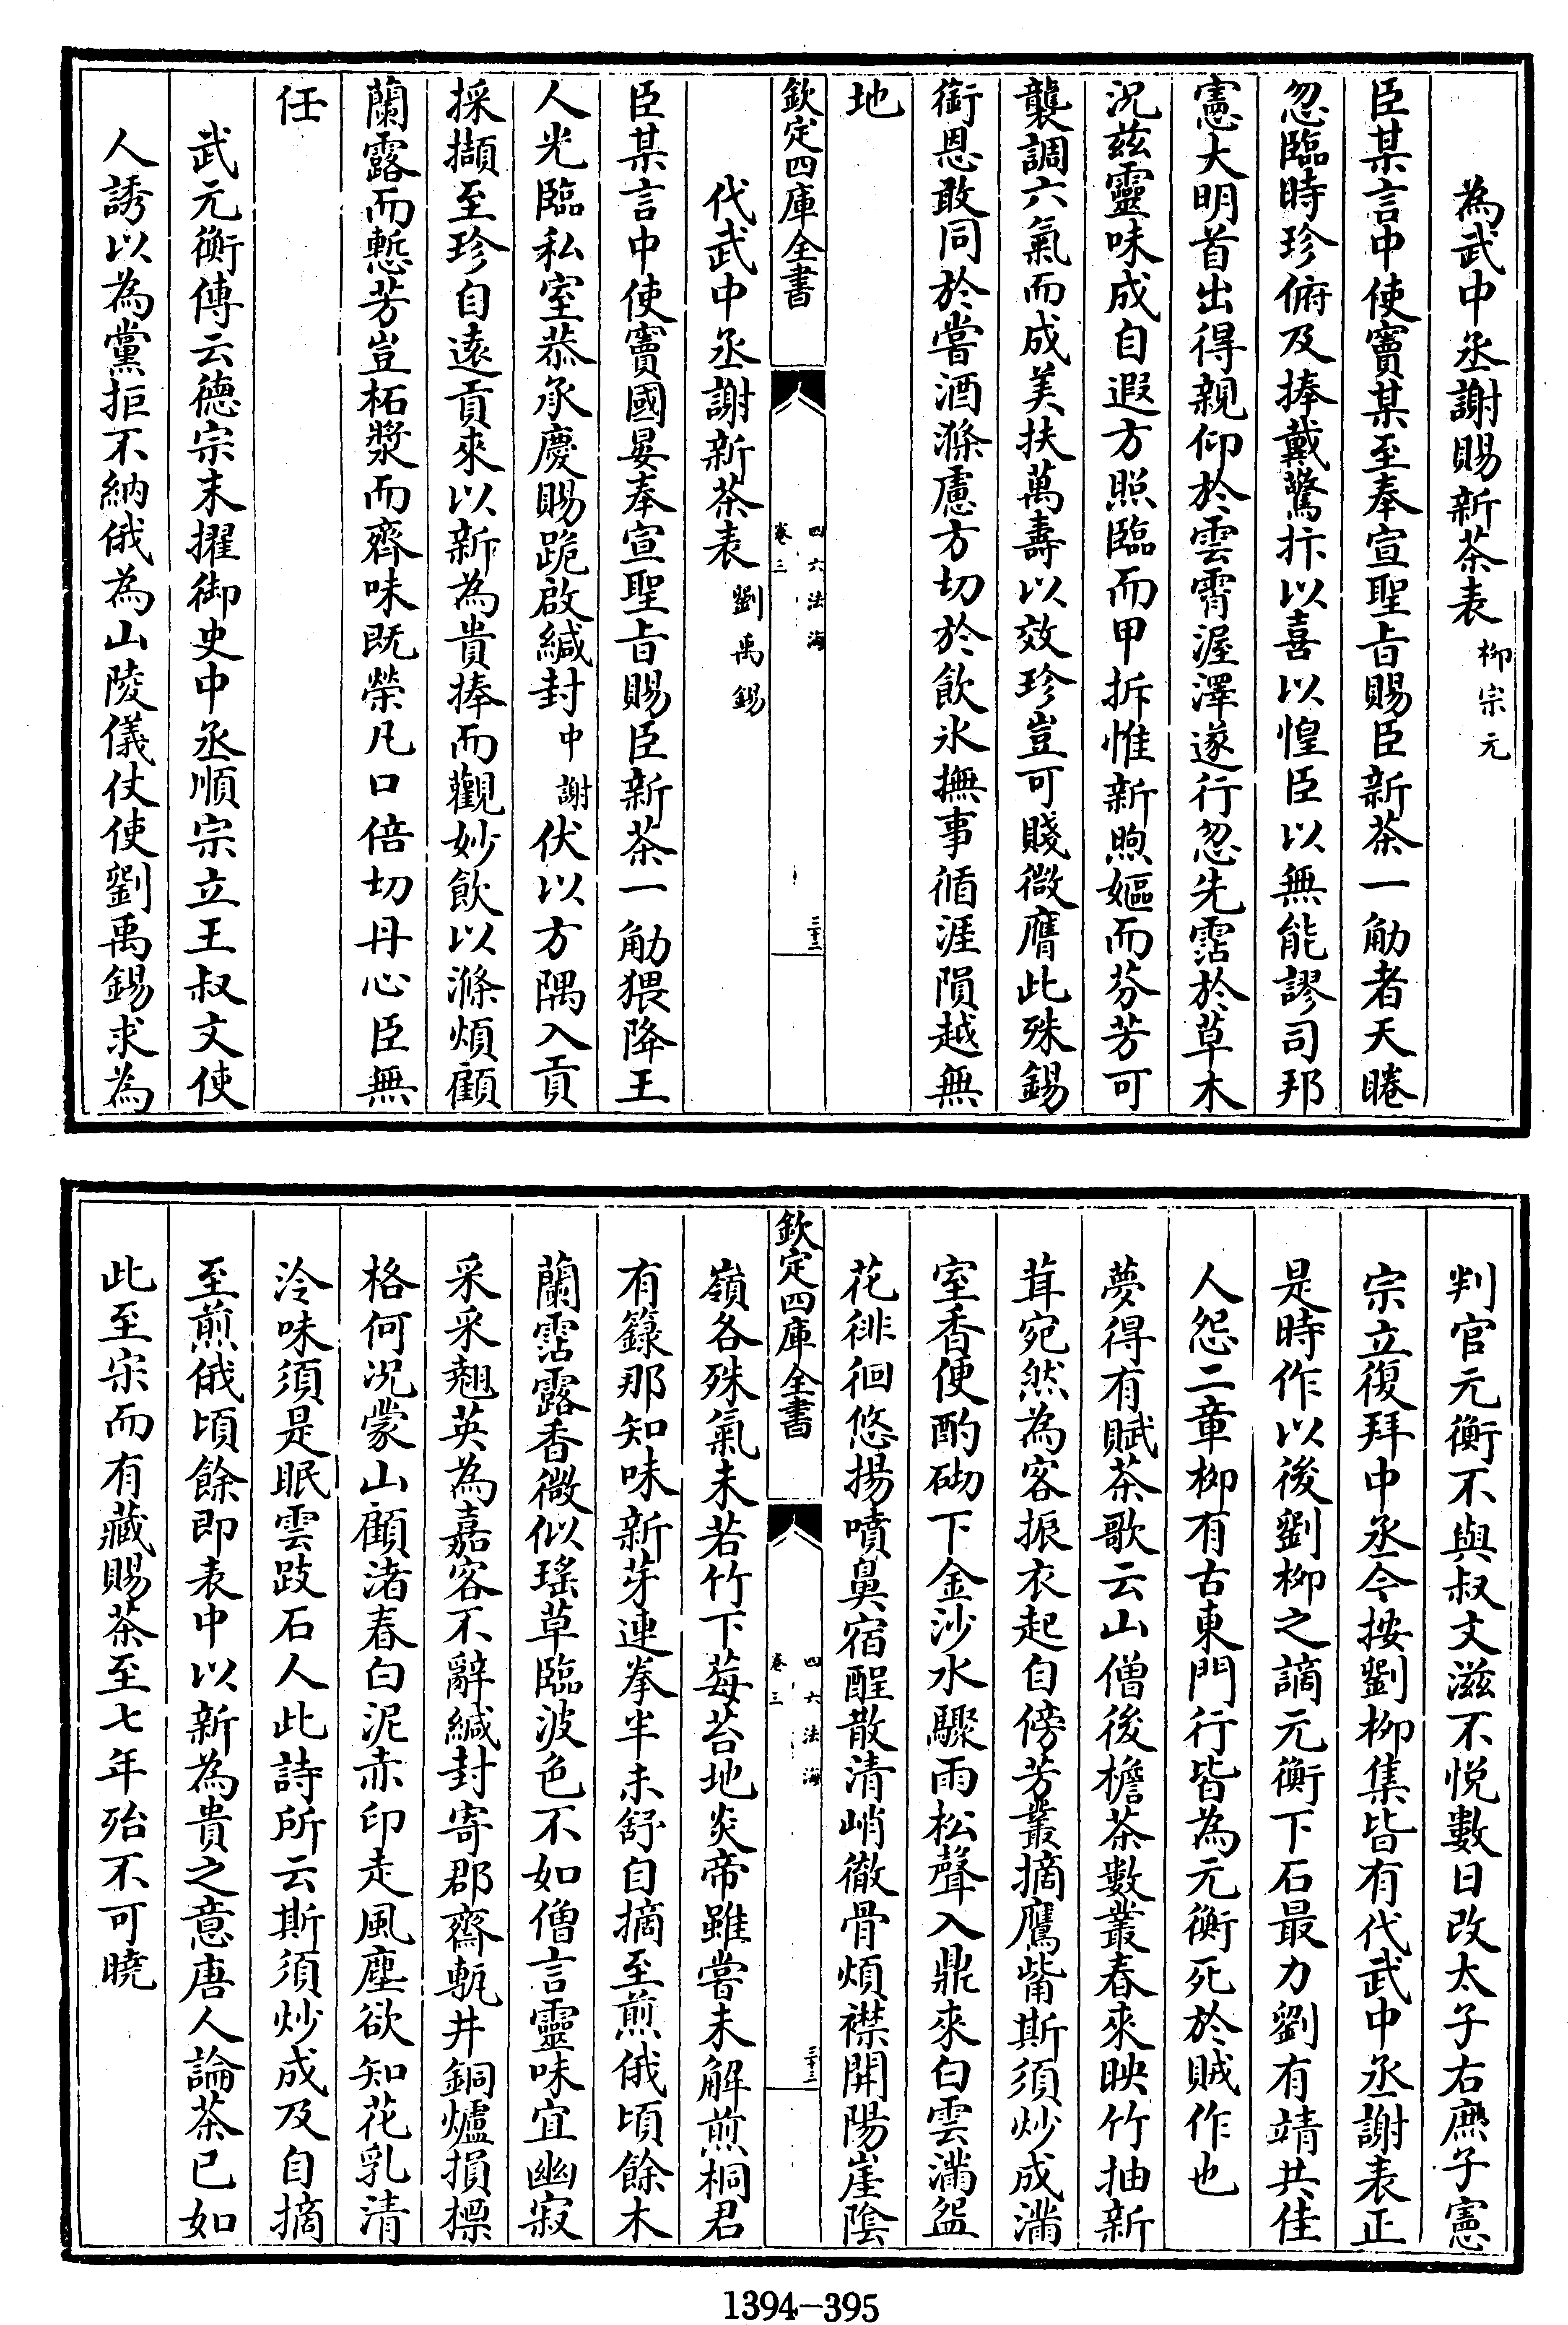 為武中丞謝賜新茶表 柳宗元
臣某言中使竇某至奉宣聖旨賜臣新茶一觔者天睠
忽臨時珍俯及捧戴驚抃以喜以惶臣以無能謬司邦
憲大明首出得親仰於雲霄渥澤遂行忽先霑於草木
況兹靈味成自遐方照臨而甲拆惟新煦嫗而芬芳可
襲調六氣而成美扶萬壽以效珍豈可賤微膺此殊錫
銜恩敢同於嘗酒滌慮方切於飲氷撫事循涯隕越無
地
欽定四庫全書
四六法海
卷三
三十二
代武中丞謝新茶表 劉禹錫
臣某言中使竇國晏奉宣聖旨賜臣新茶一觔猥降王
人光臨私室恭承慶賜跪啟緘封中謝伏以方隅入貢
採擷至珍自遠貢來以新為貴捧而觀妙飲以滌煩顧
蘭露而慙芳豈柘漿而齊味既榮凡口倍切丹心臣無
任
武元衡傳云德宗末擢御史中丞順宗立王叔文使
人誘以為黨拒不納俄為山陵儀仗使劉禹錫求為
判官元衡不與叔文滋不悅數日改太子右庶子憲
宗立復拜中丞今按劉柳集皆有代武中丞謝表正
是時作以後劉柳之謫元衡下石最力劉有靖共佳
人怨二章柳有古東門行皆為元衡死於賊作也
夢得有賦茶歌云山僧後檐茶數叢春來映竹抽新
茸宛然為客振衣起自傍芳叢摘鷹觜斯須炒成滿
室香便酌砌下金沙水驟雨松聲入鼎來白雲滿盌
花徘徊悠揚噴鼻宿酲散清峭徹骨煩襟開陽崖陰
欽定四庫全書
四六法海
卷三
三十三
嶺各殊氣未若竹下莓苔地炎帝雖嘗未解煎桐君
有籙那知味新芽連拳半未舒自摘至煎俄頃餘木
蘭霑露香微似瑤草臨波色不如僧言靈味宜幽寂
采采翹英為嘉客不辭緘封寄郡齋甎井銅爐損標
格何況蒙山顧渚春白泥赤印走風塵欲知花乳清
泠味須是眠雲跂石人此詩所云斯須炒成及自摘
至煎俄頃餘即表中以新為貴之意唐人論茶已如
此至宗而有藏賜茶至七年殆不可曉
1394-395